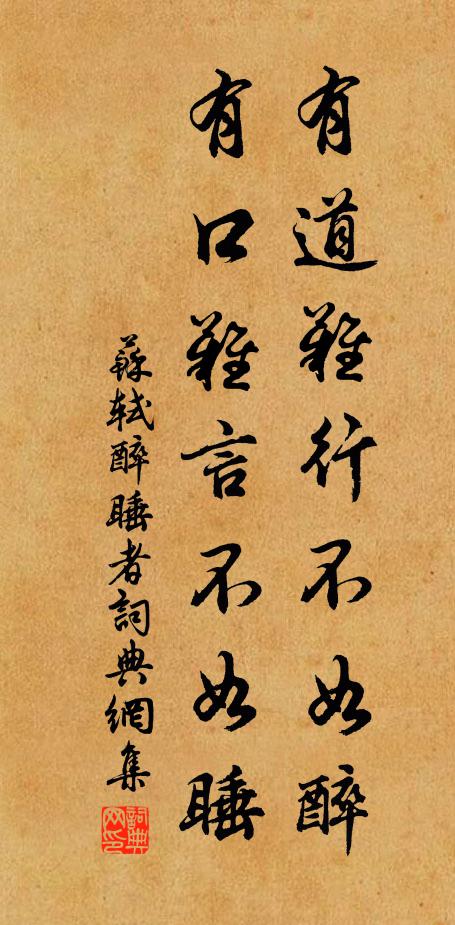 有道難行不如醉
有口難言不如睡
蘇軾醉睡者詞典網集
詞典網印